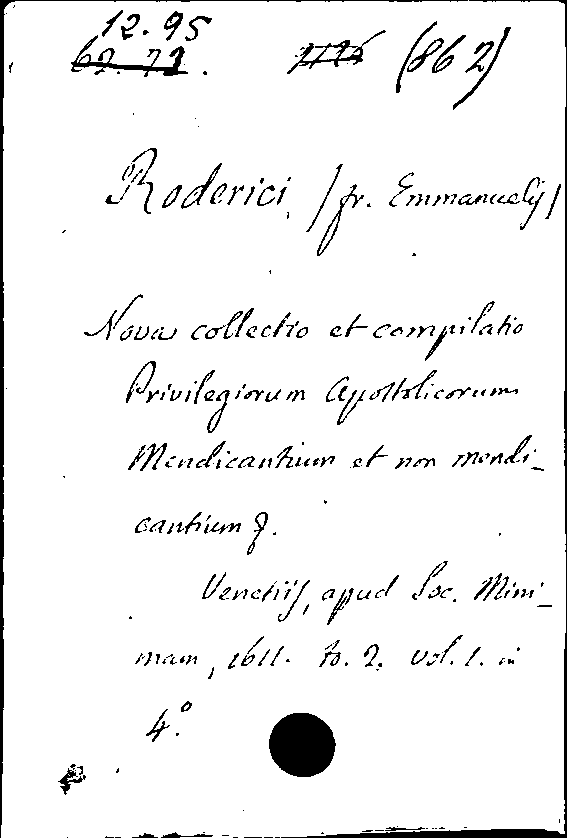 12.95
62.72. (862)
Roderici /fr. Emmanuelis/
Nova collectio et compilatio
Privilegiorum Apostolicorum
Mendicantium et non mendi-
cantium
Venetiis, apud Soc. Mini-
mam, 1611. to. 2. vol. 1. in
4.º